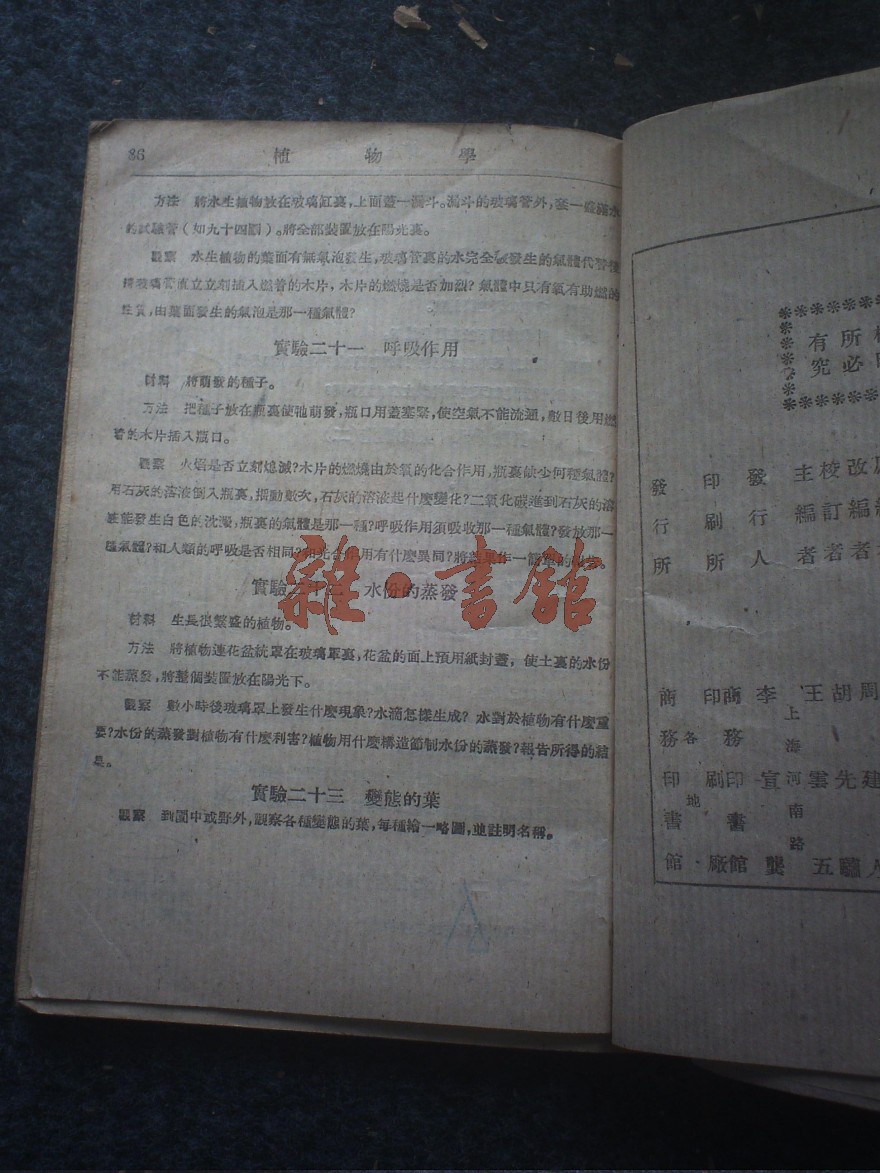 86 植物學
方法 將水生植物放在玻璃缸裏,上面蓋一漏斗。漏斗的玻璃管外,套一盛滿水
的試驗管(如九十四圖)。將全部裝置放在陽光裏。
觀察 水生植物的葉面有無氣泡發生,玻璃管裏的水完全被發生的氣體代替
玻璃管直立立刻插入燃着的木片,木片的燃燒是否加烈?氣體中只有氧有助燃的
性質,由葉面發生的氣泡是那一種氣體?
實驗二十一 呼吸作用
材料 將萌發的種子。
方法 把種子放在瓶裏使牠萌發,瓶口用蓋塞緊,使空氣不能流通,數日後用燃
着的木片插入瓶口。
觀察 火焰是否立刻熄滅?木片的燃燒由於氧的化合作用,瓶裏缺少何種氣體?
用石灰的溶液倒入瓶裏,搖動數次,石灰的溶液起什麼變化?二氧化碳進到石灰的溶
液能發生白色的沈澱,瓶裏的氣體是那一種?呼吸作用須吸收那一種氣體?發放那一
種氣體?和人類的呼吸是否相同?和光合作用有什麼異同?將結果作一簡單的報告
實驗二十二 水份的蒸發
材料 生長很繁盛的植物。
方法 將植物連花盆統罩在玻璃罩裏,花盆的面上預用紙封蓋,使土裏的水份
不能蒸發,將整個裝置放在陽光下。
觀察 數小時後玻璃罩上發生什麼現象?水滴怎樣生成?水對於植物有什麼重
要?水份的蒸發對植物有什麼利害?植物用什麼構造節制水份的蒸發?報告所得的結
果。
實驗二十三 變態的葉
觀察 到園中或野外,觀察各種變態的葉,每種繪一略圖,並註明名稱。
雜·書館
所有
必究
改編者
校訂者
主編者
發行人
印刷所
發行所
周建人
胡先驌
王雲五
李宣龔
上海河南路
商務印書館
印刷廠
各地
商務印書館